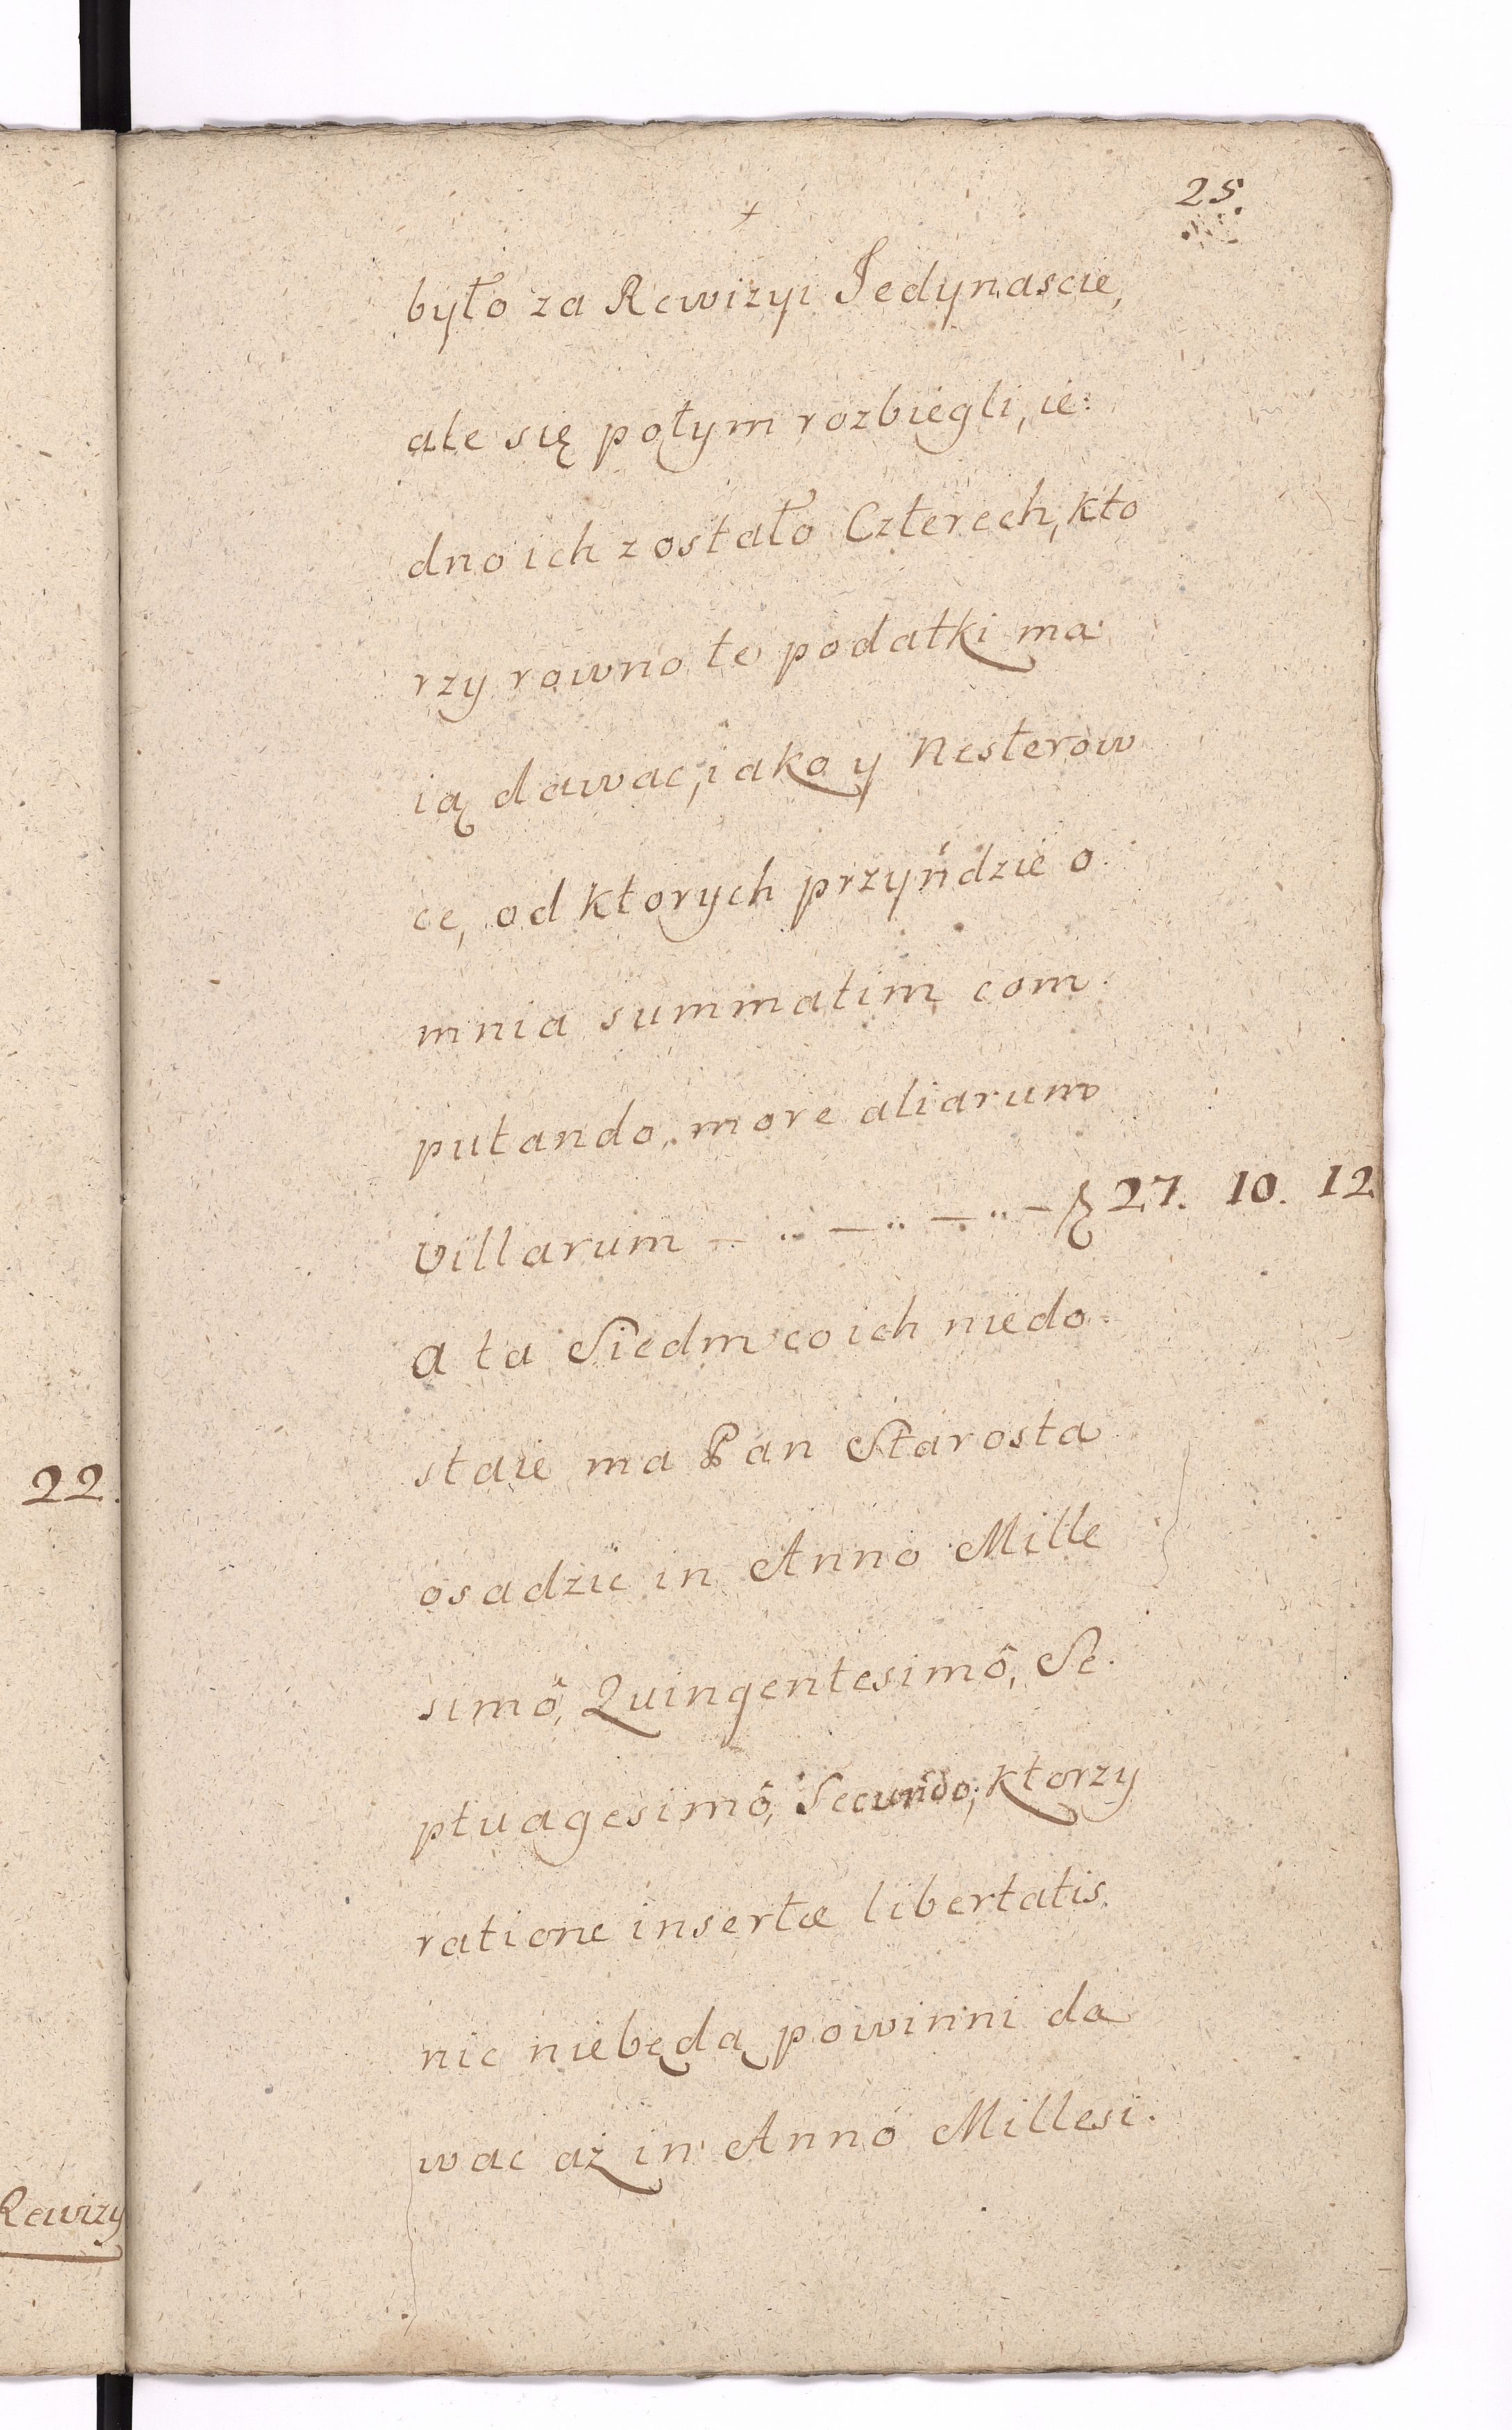 25.
było za Rewizyi Jedynascie,
ale się potym rozbiegli, ie:
dno ich zostało Czterech, kto
rzy rowno te podatki ma
ią dawac, iako y Nesterow
ce, od ktorych przyńdzie o
mnia summatim com
putando, more aliarum
villarum — .. — .. — .. — 27. 10. 12
A ta Siedm co ich niedo
staie ma Pan Starosta
osadzic in Anno Mille
simô, Quingentesimô, Se
ptuagesimô, Secundo, ktorzy
ratione insertæ libertatis
nic niebędą powinni da
wac aż in Anno Millesi.
22.
Rewizy